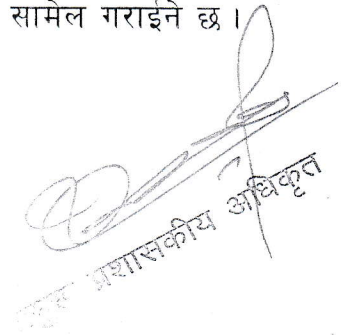 सामेल गराईने छ ।
प्रशासकीय अधिकृत